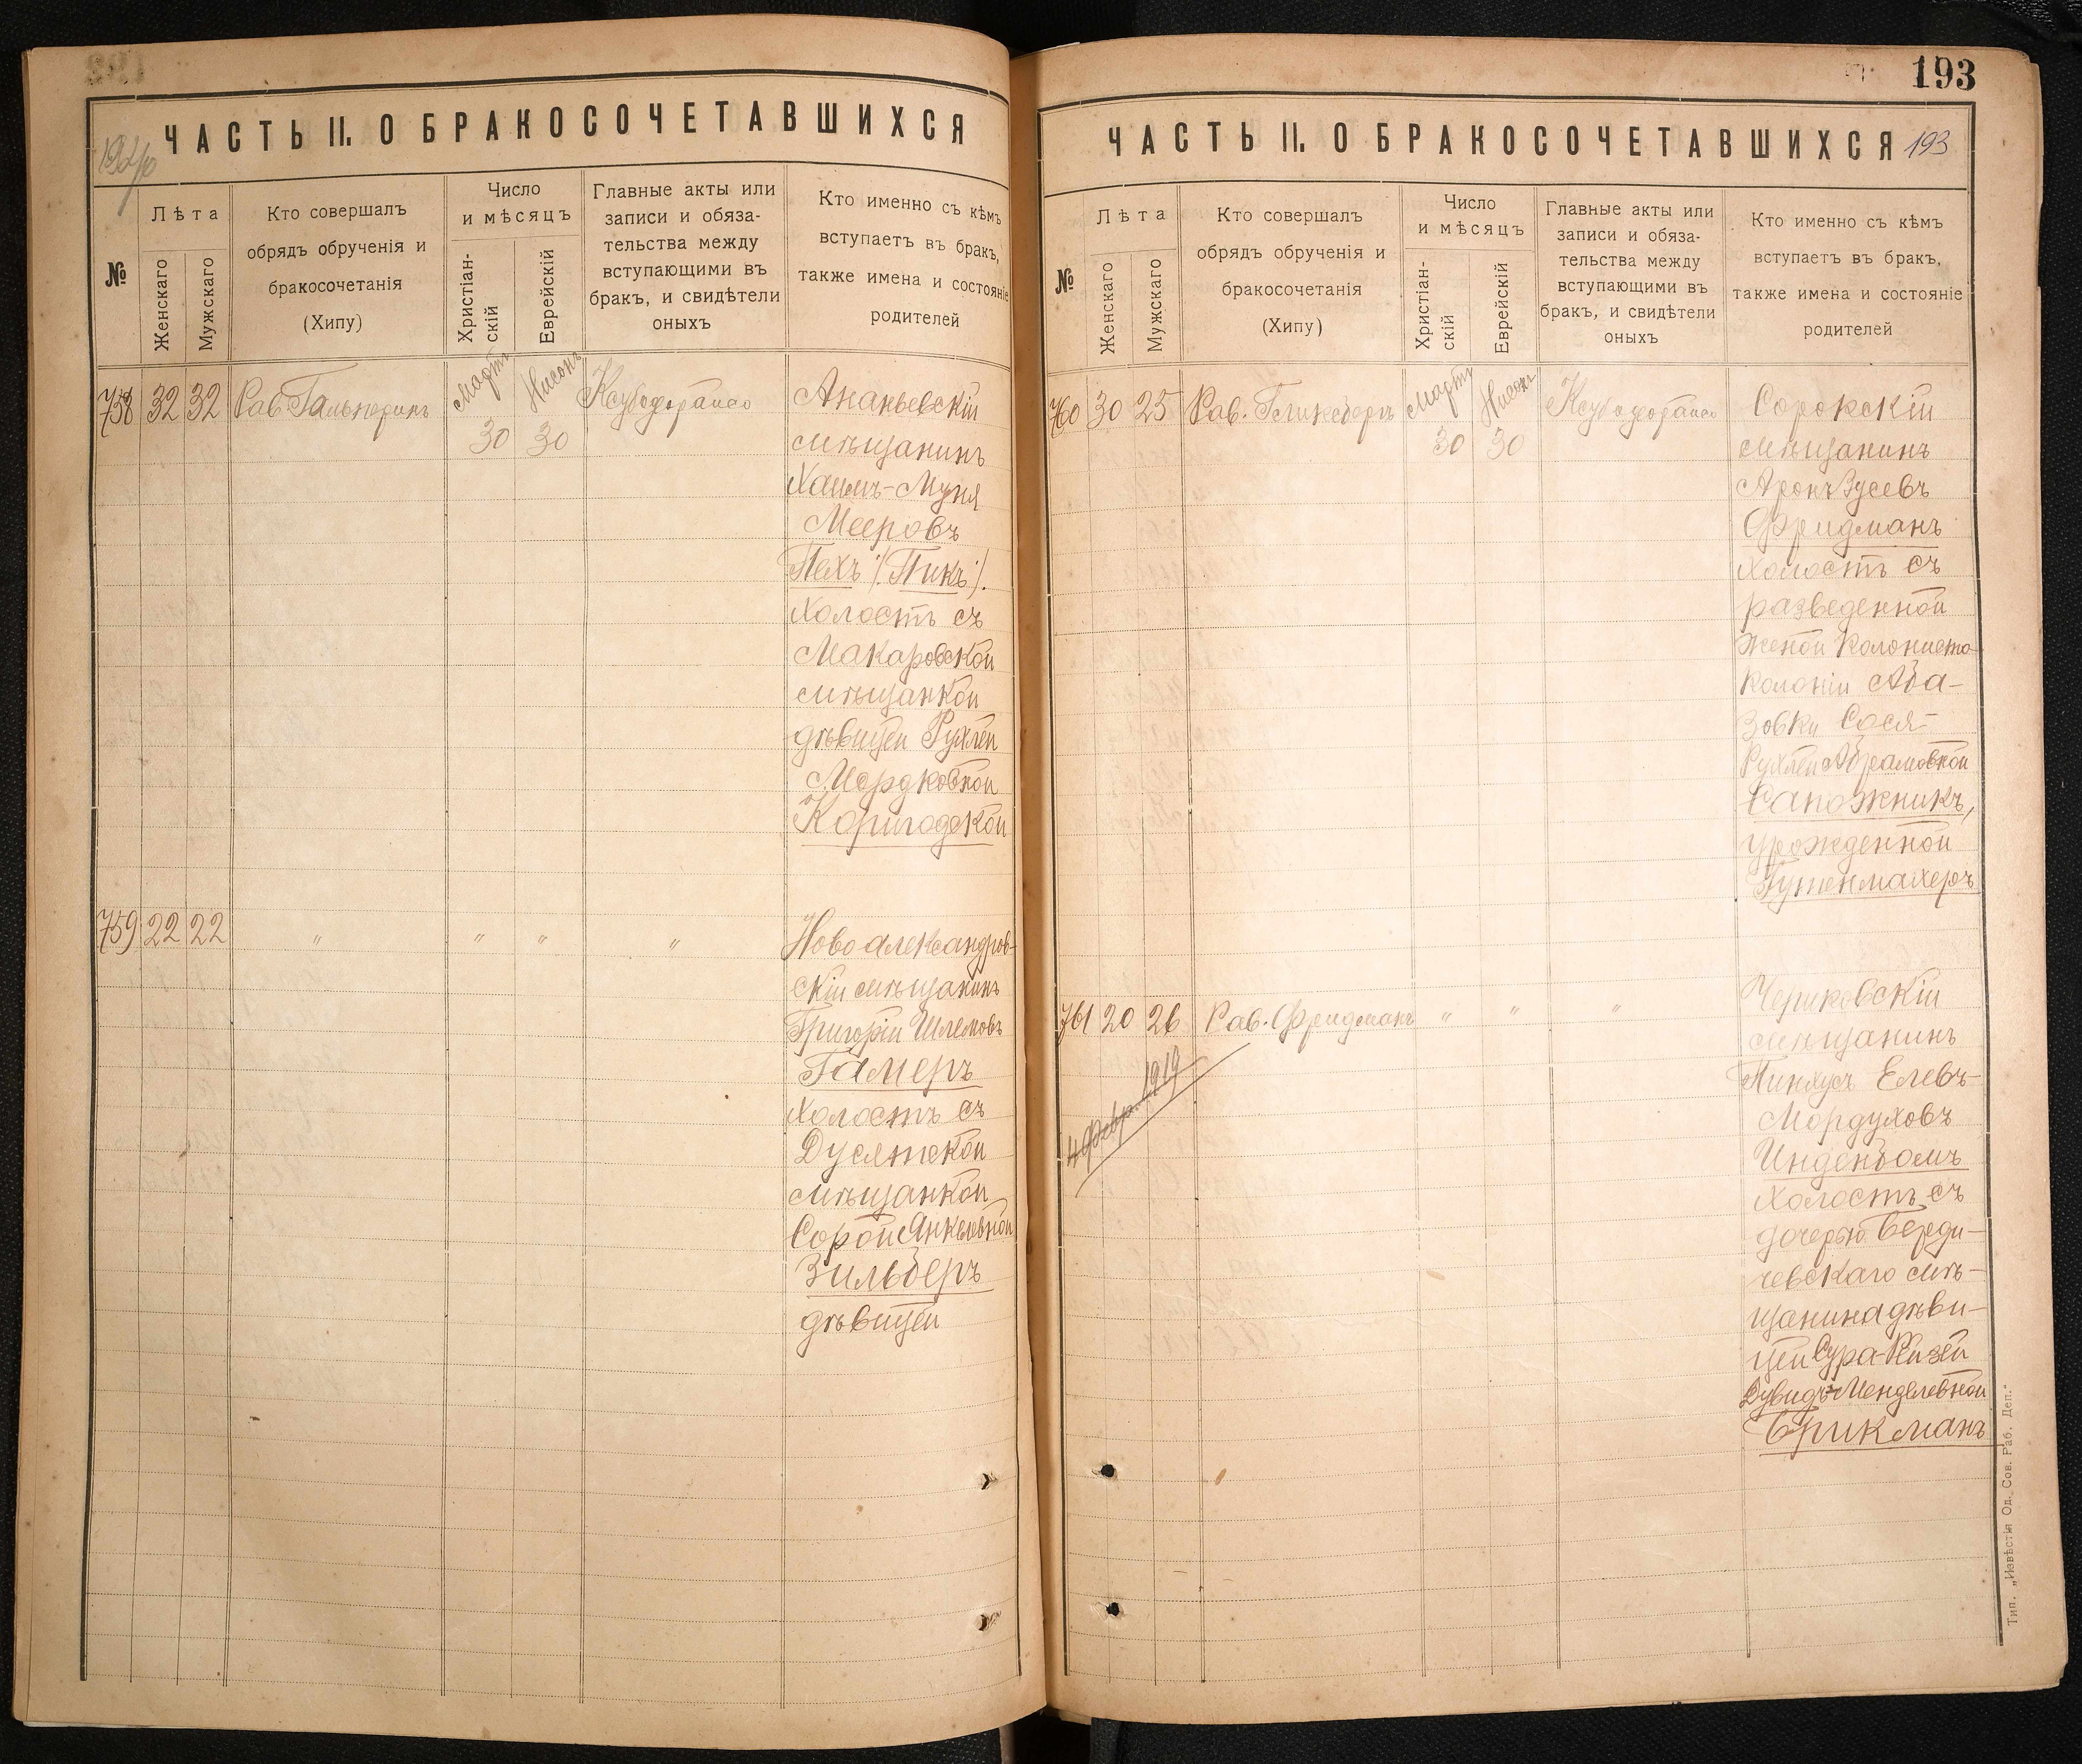 ЧАСТЬ II. О БРАКОСОЧЕТАВШИХСЯ
№
Лѣта
Женскаго
Мужскаго
Кто совершалъ
обрядъ обрученія и
бракосочетанія
(Хипу)
Число
и мѣсяцъ
Христіан-
скій
Еврейскій
Главные акты или
записи и обяза-
тельства между
вступающими въ
бракъ, и свидѣтели
оныхъ
Кто именно съ кѣмъ
вступаетъ въ бракъ,
также имена и состояніе
родителей
758 32 32 Рав. Гальперинъ
Мартъ
30
Нисонъ
30
Ананьевскій
мѣщанинъ
Хаимъ-Муня
Мееровъ
Пехъ /:Пикъ:/.
холостъ съ
Макаровской
мѣщанкой
дѣвицей Рухлей
Мордковной
Коригодской
759 22 22 " " " "
Новоалександров-
скій мѣщанинъ
Григорій Шлемовъ
Гамеръ
холостъ съ
Дусятской
мѣщанкой
Сорой Янкелевной
Зильберъ
дѣвицей
193
ЧАСТЬ II. О БРАКОСОЧЕТАВШИХСЯ 193
№
Лѣта
Женскаго
Мужскаго
Кто совершалъ
обрядъ обрученія и
бракосочетанія
(Хипу)
Число
и мѣсяцъ
Христіан-
скій
Еврейскій
Главные акты или
записи и обяза-
тельства между
вступающими въ
бракъ, и свидѣтели
оныхъ
Кто именно съ кѣмъ
вступаетъ въ бракъ,
также имена и состояніе
родителей
760 30 25 Рав. Гликсбергъ
Мартъ
30
Нисонъ
30
Сорокскій
мѣщанинъ
Аронъ Зусевъ
Фридманъ
холостъ съ
разведенной
женой колониста
колоніи Аба-
зовки Сося-
Рухлей Абрамовной
Сапожникъ,
урожденной
Гутенмахеръ
761 20 26 Рав. Фридманъ " " "
4 февр. 1919
Чериковскій
мѣщанинъ
Пинхусъ Елевъ-
Мордуховъ
Инденбомъ
холостъ съ
дочерью Берди-
чевскаго мѣ-
щанина дѣви-
цей Сура-Рейзей
Дувидъ-Менделевной
Брикманъ
Тип. „Извѣстія Од. Сов. Раб. Деп."